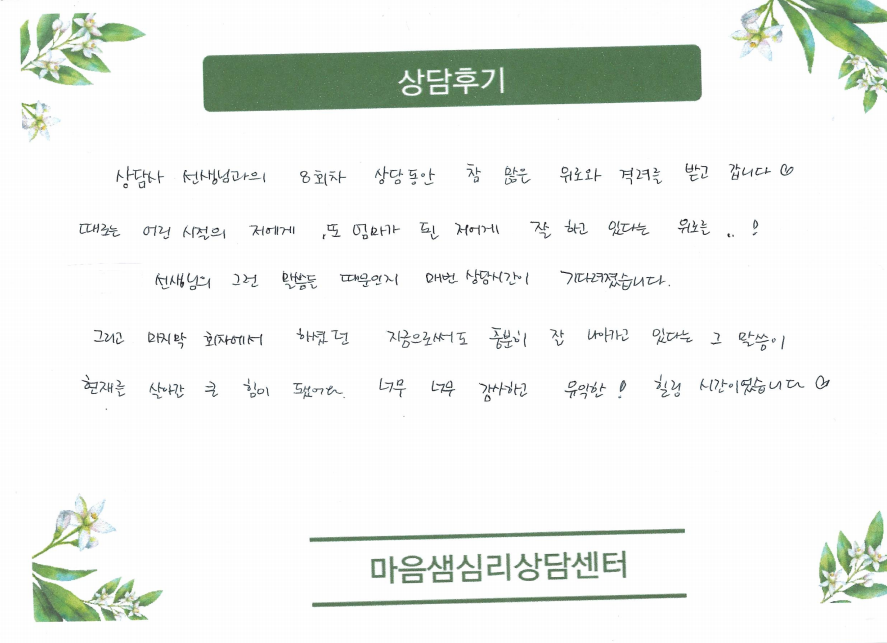 상담후기
상담사 선생님과의 8회차 상담동안 참 많은 위로와 격려를 받고 갑니다♡
때로는 어린 시절의 저에게, 또 엄마가 된 저에게 잘 하고 있다는 위로를..!
선생님의 그런 말씀들 때문인지 매번 상담시간이 기다려졌습니다.
그리고 마지막 회차에서 하셨던 지금으로써도 충분히 잘 나아가고 있다는 그 말씀이
현재를 살아갈 큰 힘이 됐어요. 너무 너무 감사하고 유익한! 힐링 시간이였습니다♡
마음샘심리상담센터